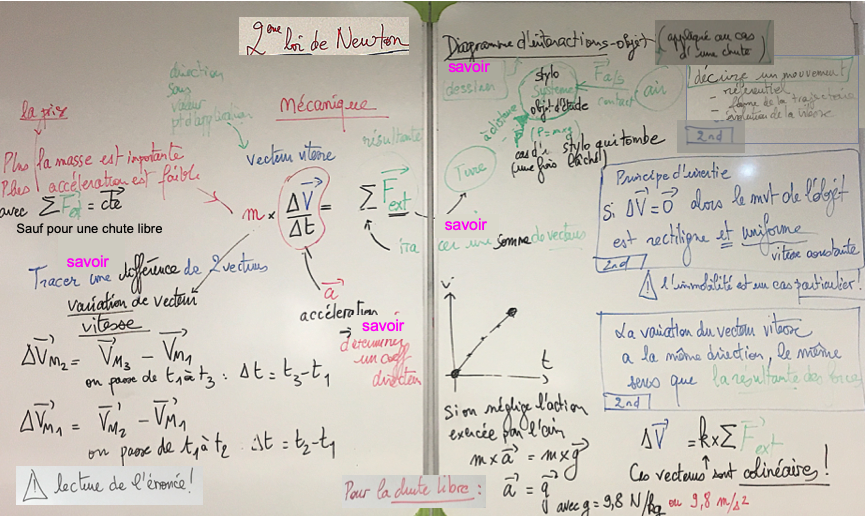 2ème loi de Newton
direction
sens
valeur
pt d'application
la prise
Mécanique
Plus la masse est importante
Plus accélération est faible
avec Σ F⃗ext = cte⃗
Sauf pour une chute libre
vecteur vitesse
résultante
m × ΔV⃗/Δt = Σ F⃗ext
savoir
Tracer une différence de 2 vecteurs
variation de vecteur
vitesse
a⃗
accéleration
savoir
→ déterminer
un coeff
directeur
ΔV⃗M2 = V⃗M3 − V⃗M1
on passe de t1 à t3 : Δt = t3 - t1
ΔV⃗M1 = V⃗M2 − V⃗M1
on passe de t1 à t2 Δt = t2 - t1
⚠ lecture de l'énoncé!
Diagramme d'interactions-objet (appliqué au cas d'une chute)
savoir
dessiner
stylo
Système
objet d'étude
F⃗a/s
contact
air
à distance
(P=mg)
Terre
cas d'1 stylo qui tombe
(une fois lâché!)
savoir
tracer une somme de vecteurs
décrire un mouvement
- référentiel
- forme de la trajectoire
- évolution de la vitesse
2nd
Principe d'inertie
Si ΔV⃗ = 0⃗ alors le mvt de l'objet
est rectiligne et uniforme
vitesse constante
2nd
⚠ l'immobilité est un cas particulier!
La variation du vecteur vitesse
a la même direction, le même
sens que la résultante des forces
2nd
v
t
Si on néglige l'action
exercée par l'air
m × a⃗ = m × g⃗
Pour la chute libre :
a⃗ = g⃗
avec g = 9,8 N/kg ou 9,8 m/s2
ΔV⃗ = k × Σ F⃗ext
Ces vecteurs sont colinéaires!